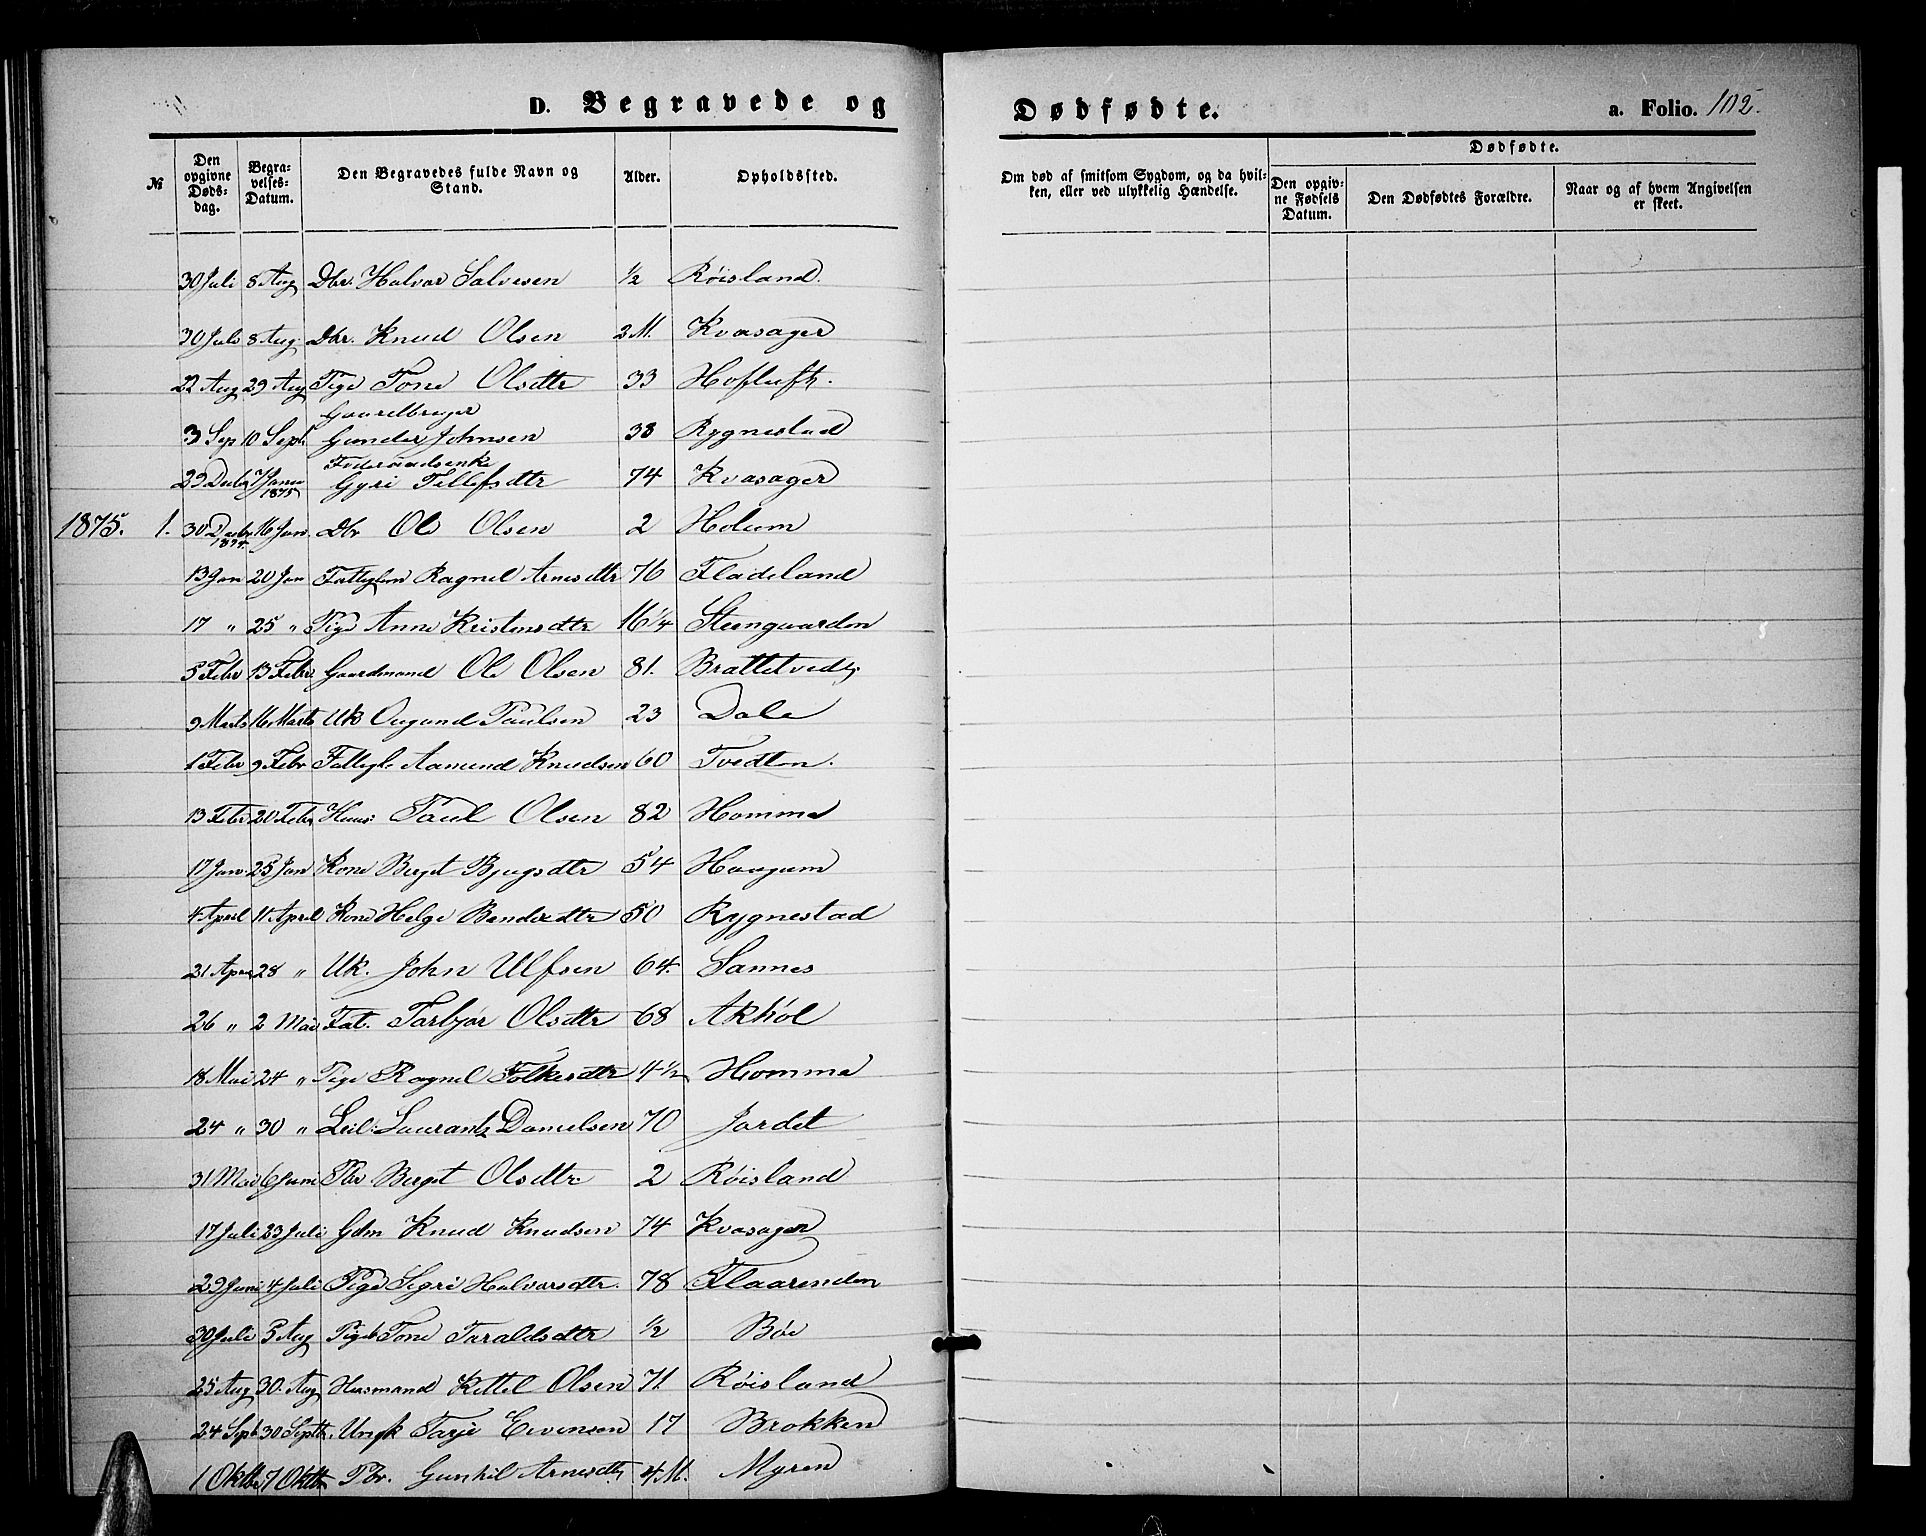 D. Begravede og Dødfødte. a. Folio. 102.
№ Den opgivne Døds-dag. Begra-velses-Datum. Den Begravedes fulde Navn og Stand. Alder. Opholdssted. Om død af smitsom Sygdom, og da hvil-ken, eller ved ulykkelig Hændelse. Dødfødte. Den opgiv-ne Fødsels Datum. Den Dødfødtes Forældre. Naar og af hvem Angivelsen er skeet.
30 Juli 8 Aug Dbr. Halvor Salvesen ½ Røisland.
30 Juli 8 Aug. Dbr. Knud Olsen 3 M. Kvasager
22 Aug 29 Aug Pige Tone Olsdtr 33 Hofluft.
Gaardbruger
3 Sep 10 Sept. Gunder Johnsen 38 Rygnestad
Føderaadsenke
29 Decbr 7 Janu 1875 Gyri Tellefsdtr 74 Kvasager
1875. 1. 30 Decbr 1874. 16 Jan. Dbr Ole Olsen 2 Holum
13 Jan 20 Jan Fattiglem Ragnil Arnesdtr 76 Fladeland
17 " 25 " Pige Anne Kristensdtr 16 ¼ Steengaarden
5 Febr 13 Febr. Gaardmand Ole Olsen 81. Brattetvedt
9 Marts 16 Marts Uk Ougund Paulsen 23 Dale
1 Febr 9 Febr Fattigl. Aamund Knudsen 60 Tvedten.
13 Febr 20 Febr Huus: Paul Olsen 82 Homme
17 Jan. 25 Jan Kone Berget Bjugsdtr 54 Haugum
4 April 11 April Kone Helge Bendixdtr 50 Rygnestad
21 Apr 28 " Uk. John Ulfsen 64. Sannes
26 " 2 Mai Fat. Tarbjør Olsdtr 68 Akhøl
18 Mai 24 " Pige Ragnel Folkesdtr 4 ½ Homme
24 " 30 " Leil: Laurantz Danielsen 70 Jordet
31 Mai 6 Juni Pbr Berget Olsdtr. 2 Røisland
17 Juli 23 Juli Gdm Knud Knudsen 74 Kvasager
29 Juni 4 Juli Pige Sigri Halvorsdtr. 78 Flaarenden
30 Juli 5 Aug Pigeb Tone Taraldsdtr ½ Bøe
25 Aug 30. Aug Husmand Kittel Olsen 71. Røisland
24 Sept 30 Septb. Ungk Tarje Evensen 17 Brokken
1 Oktbr 7 Oktbr Pbr. Gunhil Arnesdtr 4 M. Myren